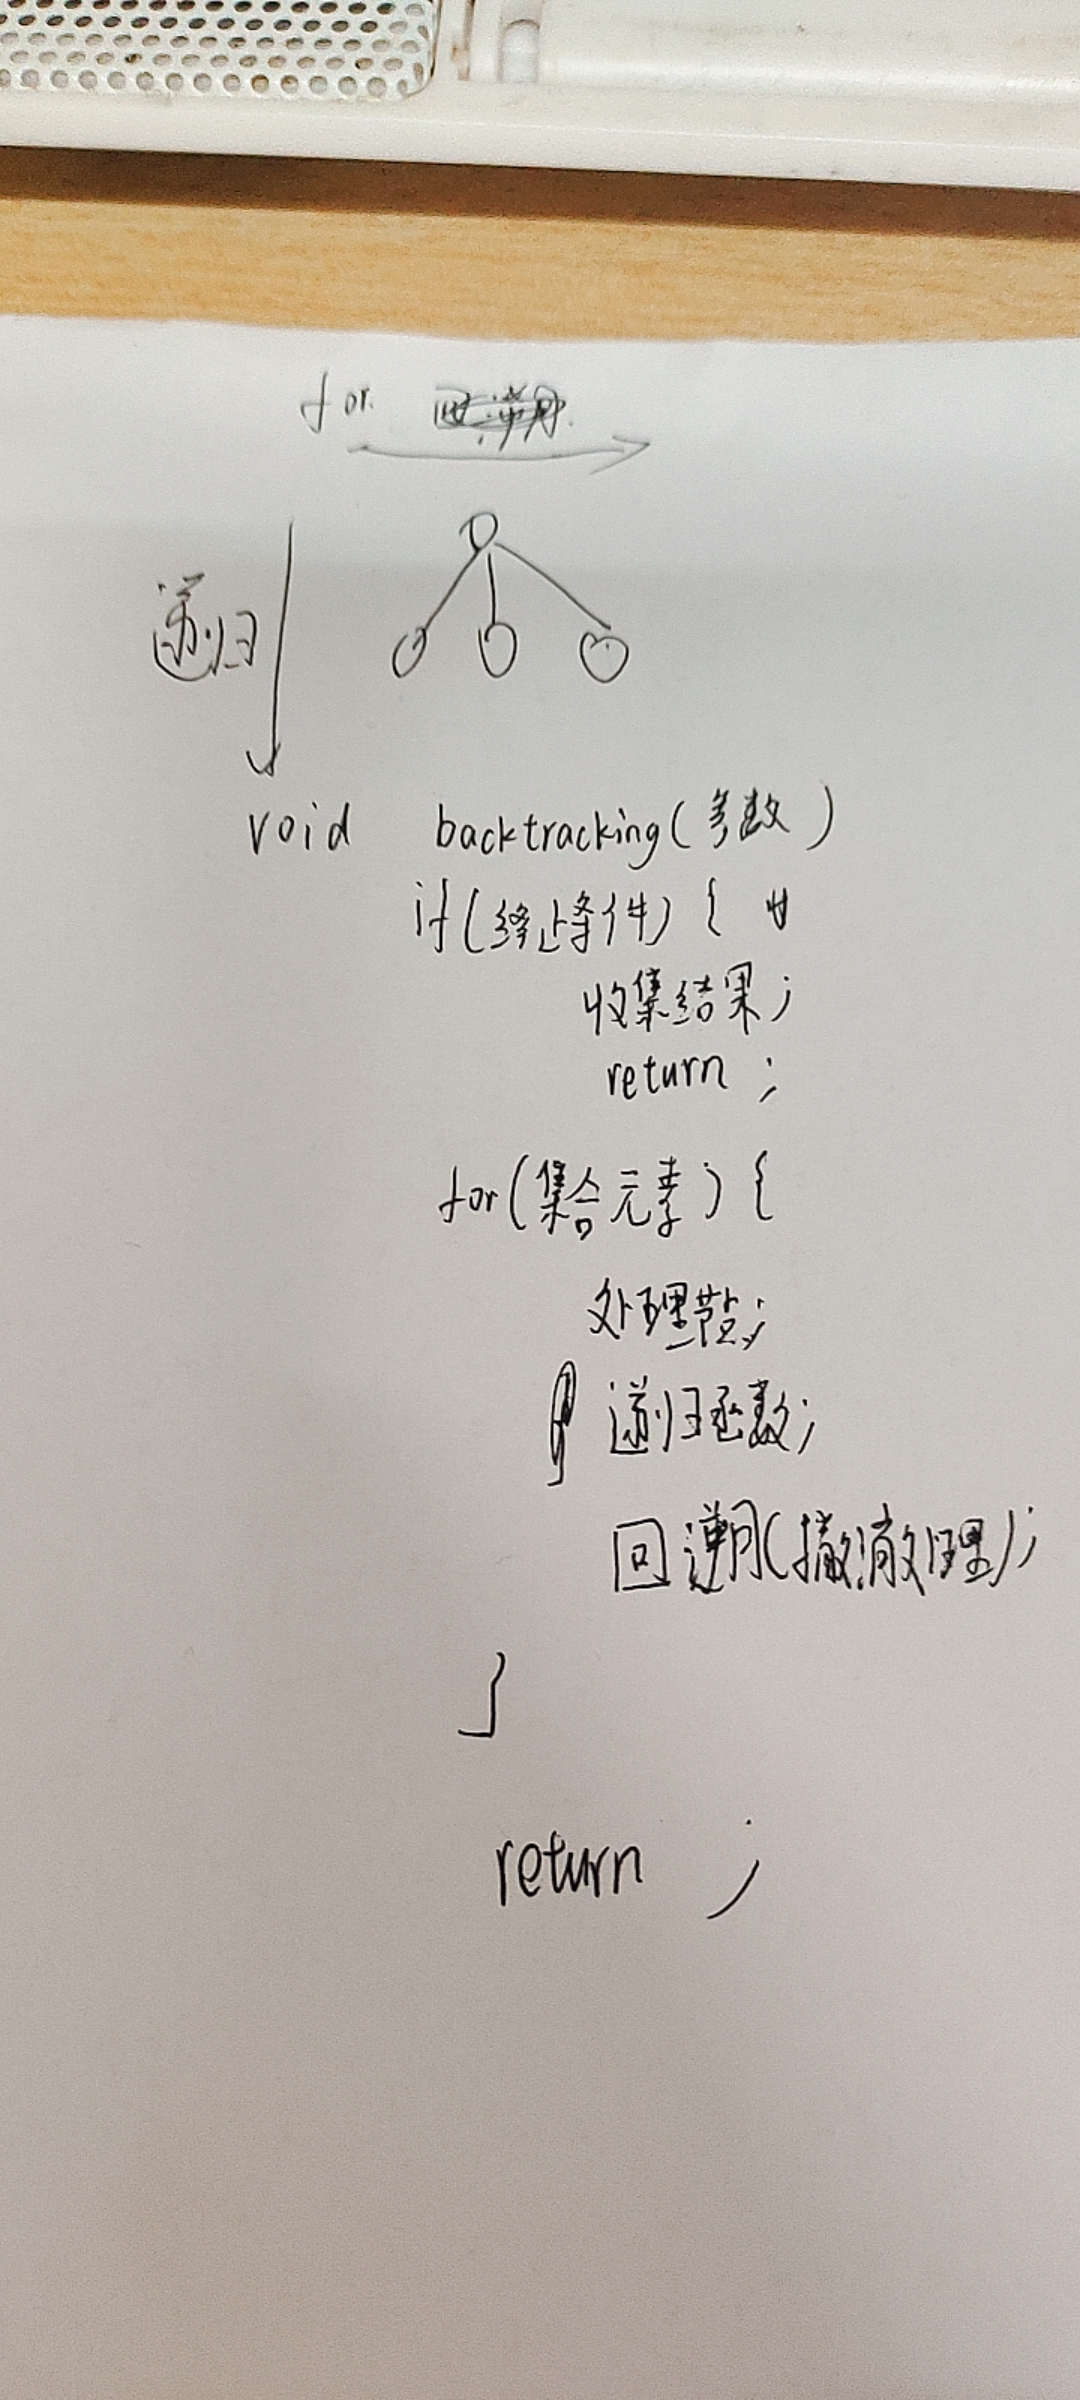 for
递归
void backtracking(参数)
if(终止条件) {
收集结果;
return ;
for(集合元素) {
处理节点;
递归函数;
回溯(撤消处理);
}
return ;